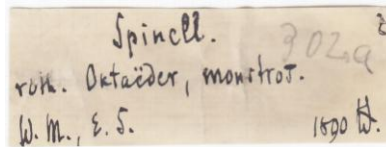 Spinell.
302a
roth. Oktaëder, monstros.
W. M., E. S. 1890